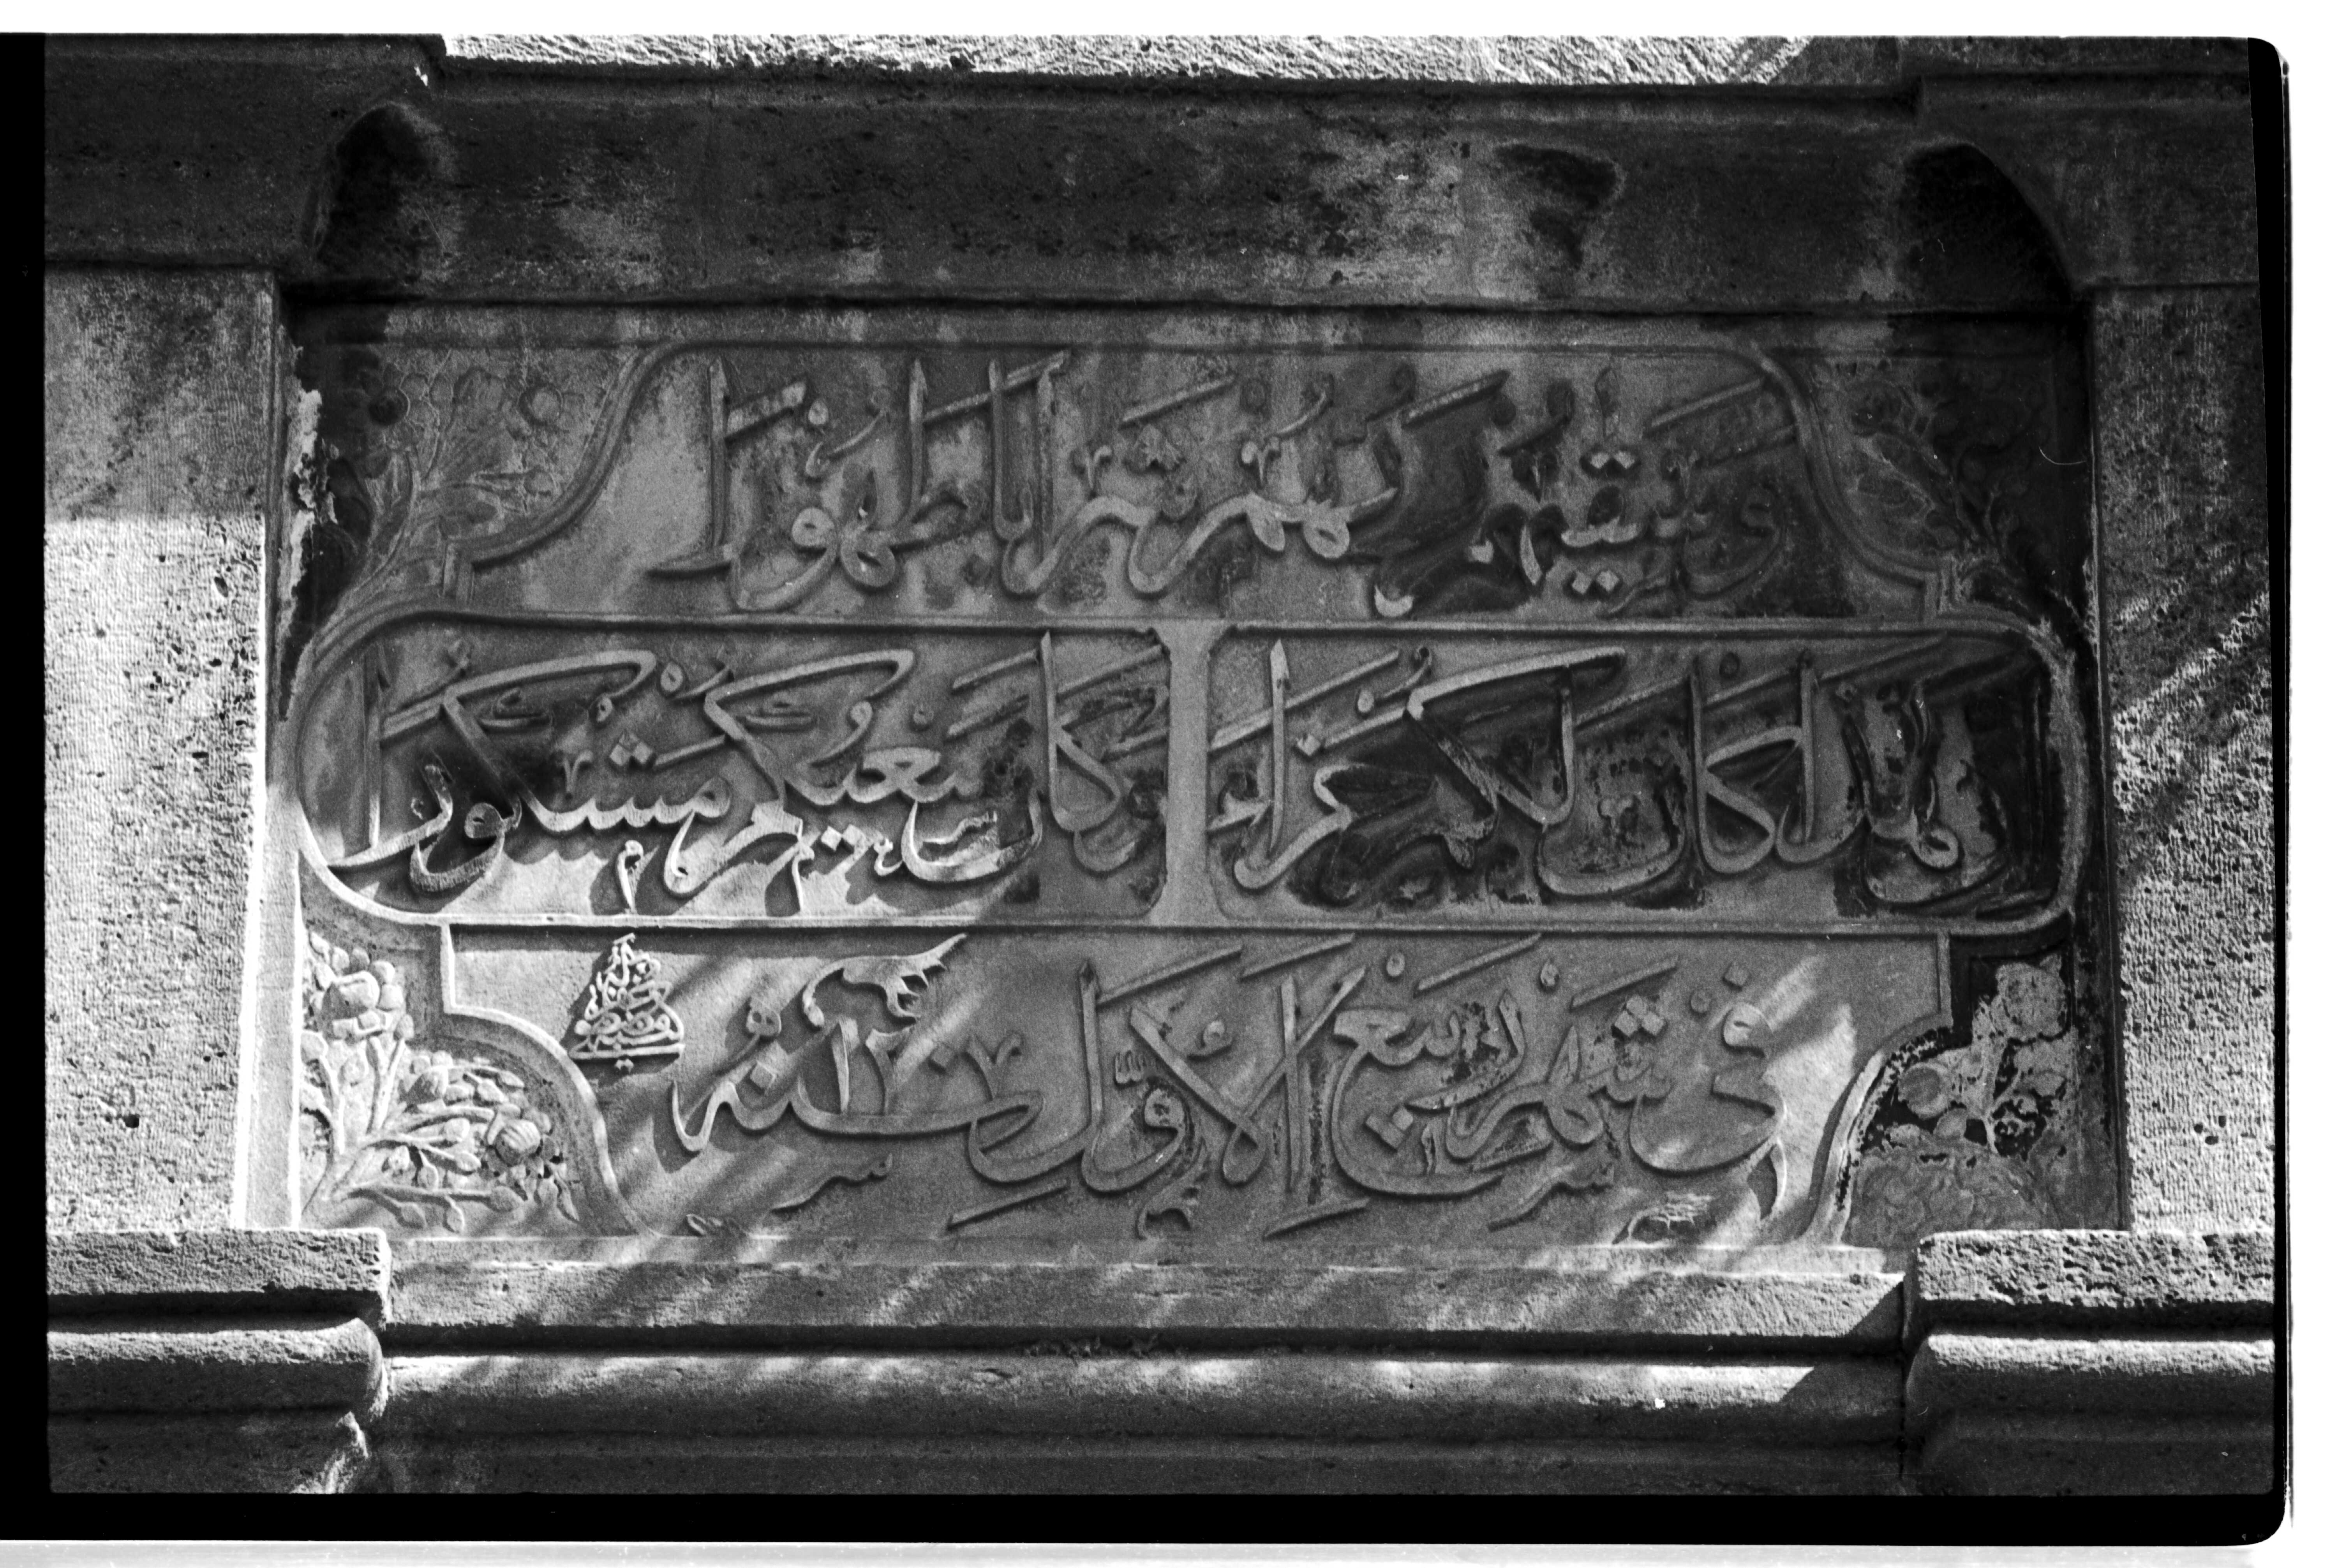 وَسَقٰيهُمْ رَبُّهُمْ شَرَابًا طَهُورًا
اِنَّ هٰذَا كَانَ لَكُمْ جَزَاءً
وَكَانَ سَعْيُكُمْ مَشْكُورًا
فِى شَهْرِ رَبِيعِ الْاَوَّلِ سَنَه ١٢٠٧